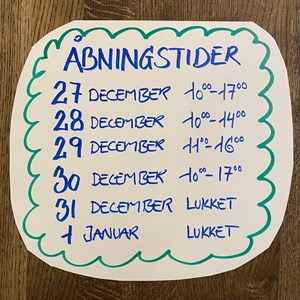 ÅBNINGSTIDER
27 DECEMBER 10⁰⁰-17⁰⁰
28 DECEMBER 10⁰⁰-14⁰⁰
29 DECEMBER 11⁰⁰-16⁰⁰
30 DECEMBER 10⁰⁰-17⁰⁰
31 DECEMBER LUKKET
1 JANUAR LUKKET